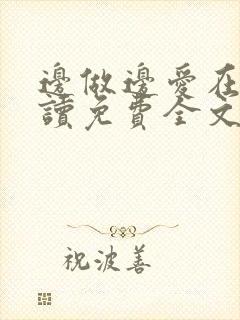 邊做邊愛在
讀免費全文
祝波善